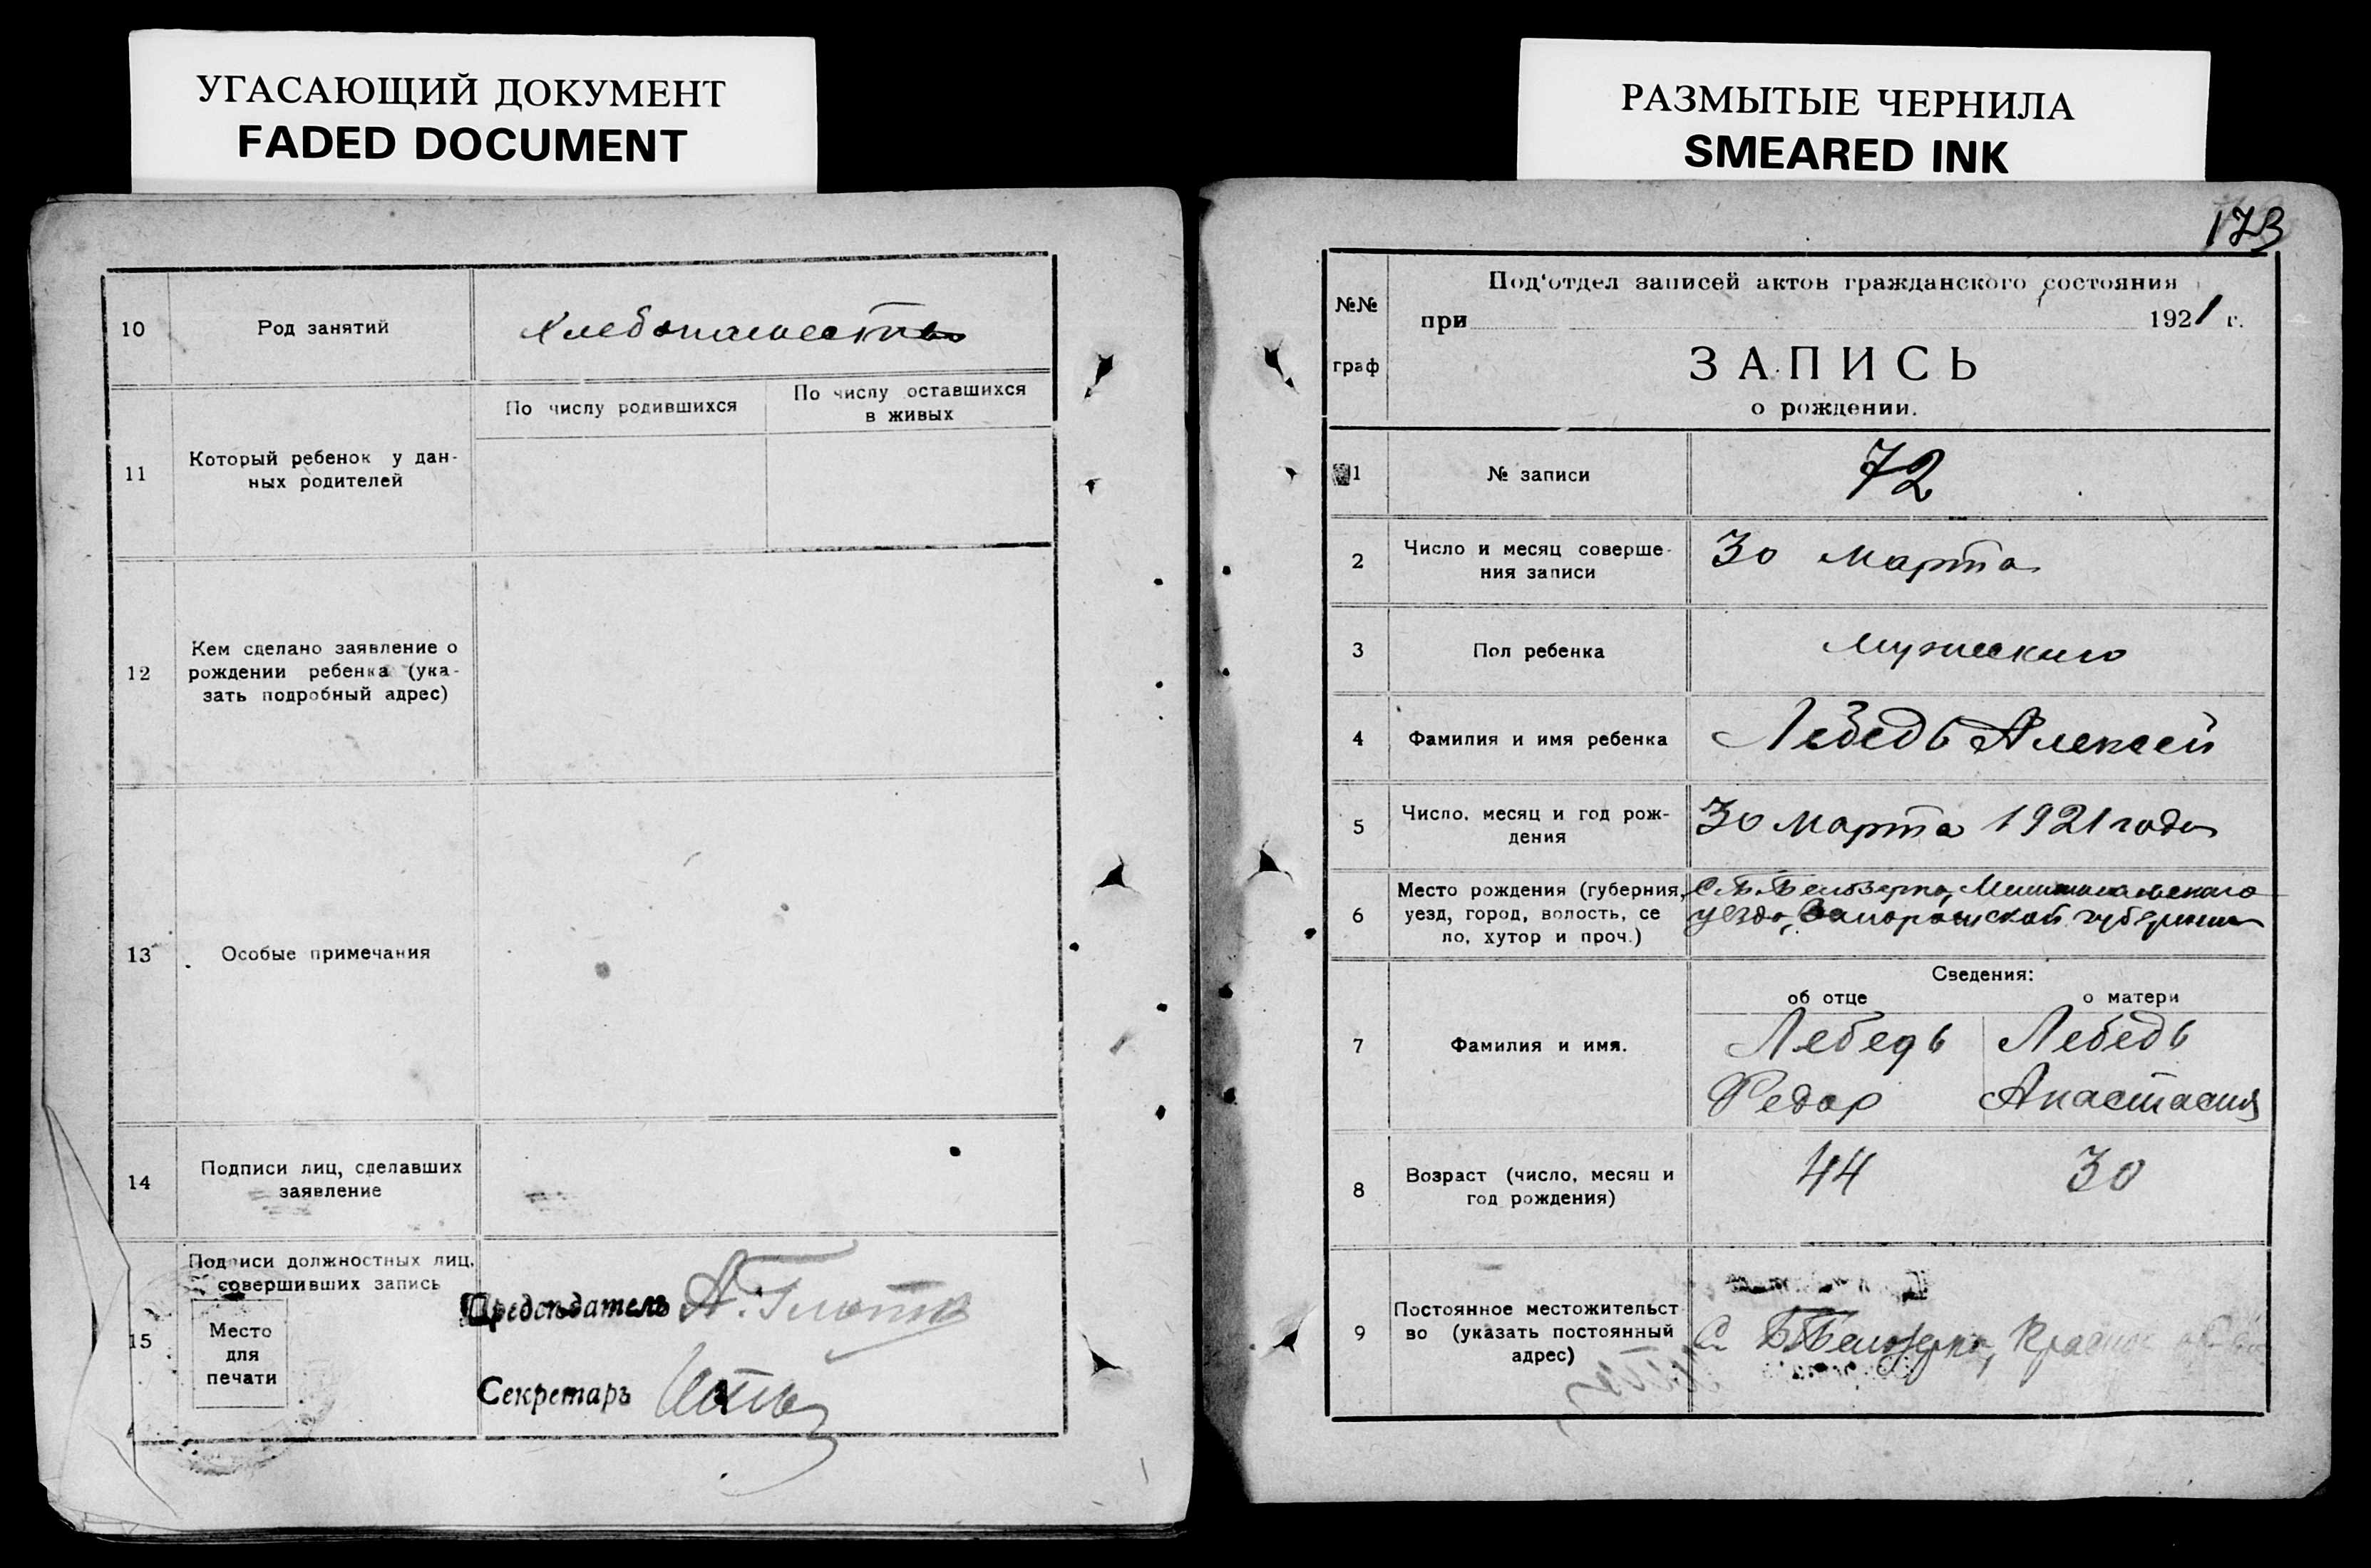 УГАСАЮЩИЙ ДОКУМЕНТ
FADED DOCUMENT
10
Род занятий
Хлебопашество
11
Который ребенок у дан-
ных родителей
По числу родившихся
По числу оставшихся
в живых
12
Кем сделано заявление о
рождении ребенка (ука-
зать подробный адрес)
13
Особые примечания
14
Подписи лиц, сделавших
заявление
15
Подписи должностных лиц,
совершивших запись
Место
для
печати
Председатель
Секретарь
РАЗМЫТЫЕ ЧЕРНИЛА
SMEARED INK
173
№№
граф
Под'отдел записей актов гражданского состояния
при 1921 г.
ЗАПИСЬ
о рождении.
1
№ записи
72
2
Число и месяц соверше-
ния записи
30 марта
3
Пол ребенка
мужескаго
4
Фамилия и имя ребенка
Лебедь Алексей
5
Число, месяц и год рож-
дения
30 марта 1921 года
6
Место рождения (губерния,
уезд, город, волость, се
ло, хутор и проч.)
С. Б. Белозерка,
уезда, Запорожской губернии
Сведения:
об отце
о матери
7
Фамилия и имя.
Лебедь
Федор
Лебедь
Анастасия
8
Возраст (число, месяц и
год рождения)
44
30
9
Постоянное местожительст
во (указать постоянный
адрес)
С. Б. Белозерка,